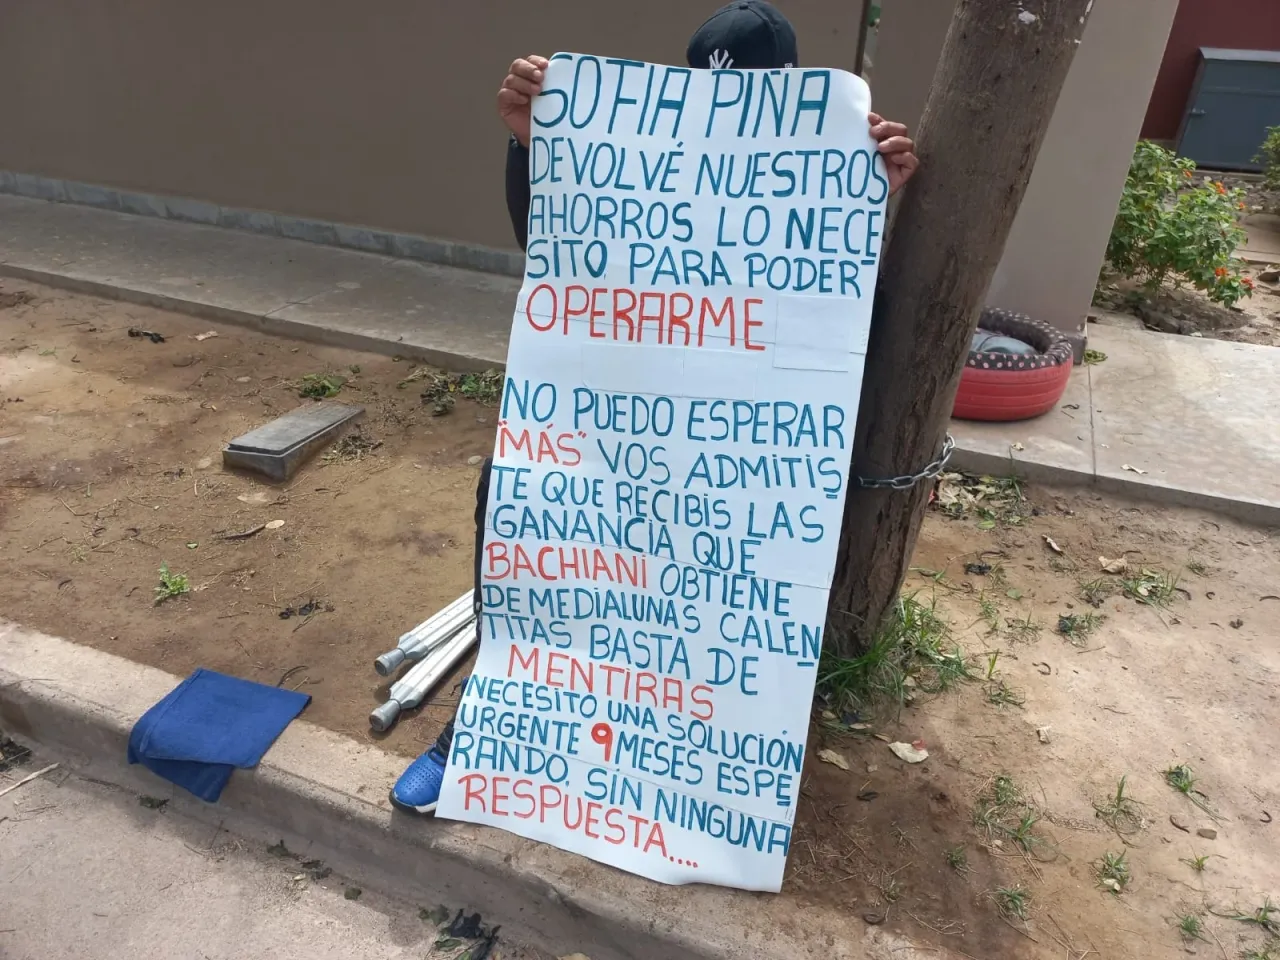 SOFIA PIÑA
DEVOLVÉ NUESTROS
AHORROS LO NECE
SITO, PARA PODER
OPERARME
NO PUEDO ESPERAR
"MÁS" VOS ADMITIS
TE QUE RECIBIS LAS
GANANCIA QUE
BACHIANI OBTIENE
DE MEDIALUNAS CALEN
TITAS BASTA DE
MENTIRAS
NECESITO UNA SOLUCIÓN
URGENTE 9 MESES ESPE
RANDO, SIN NINGUNA
RESPUESTA....
NY